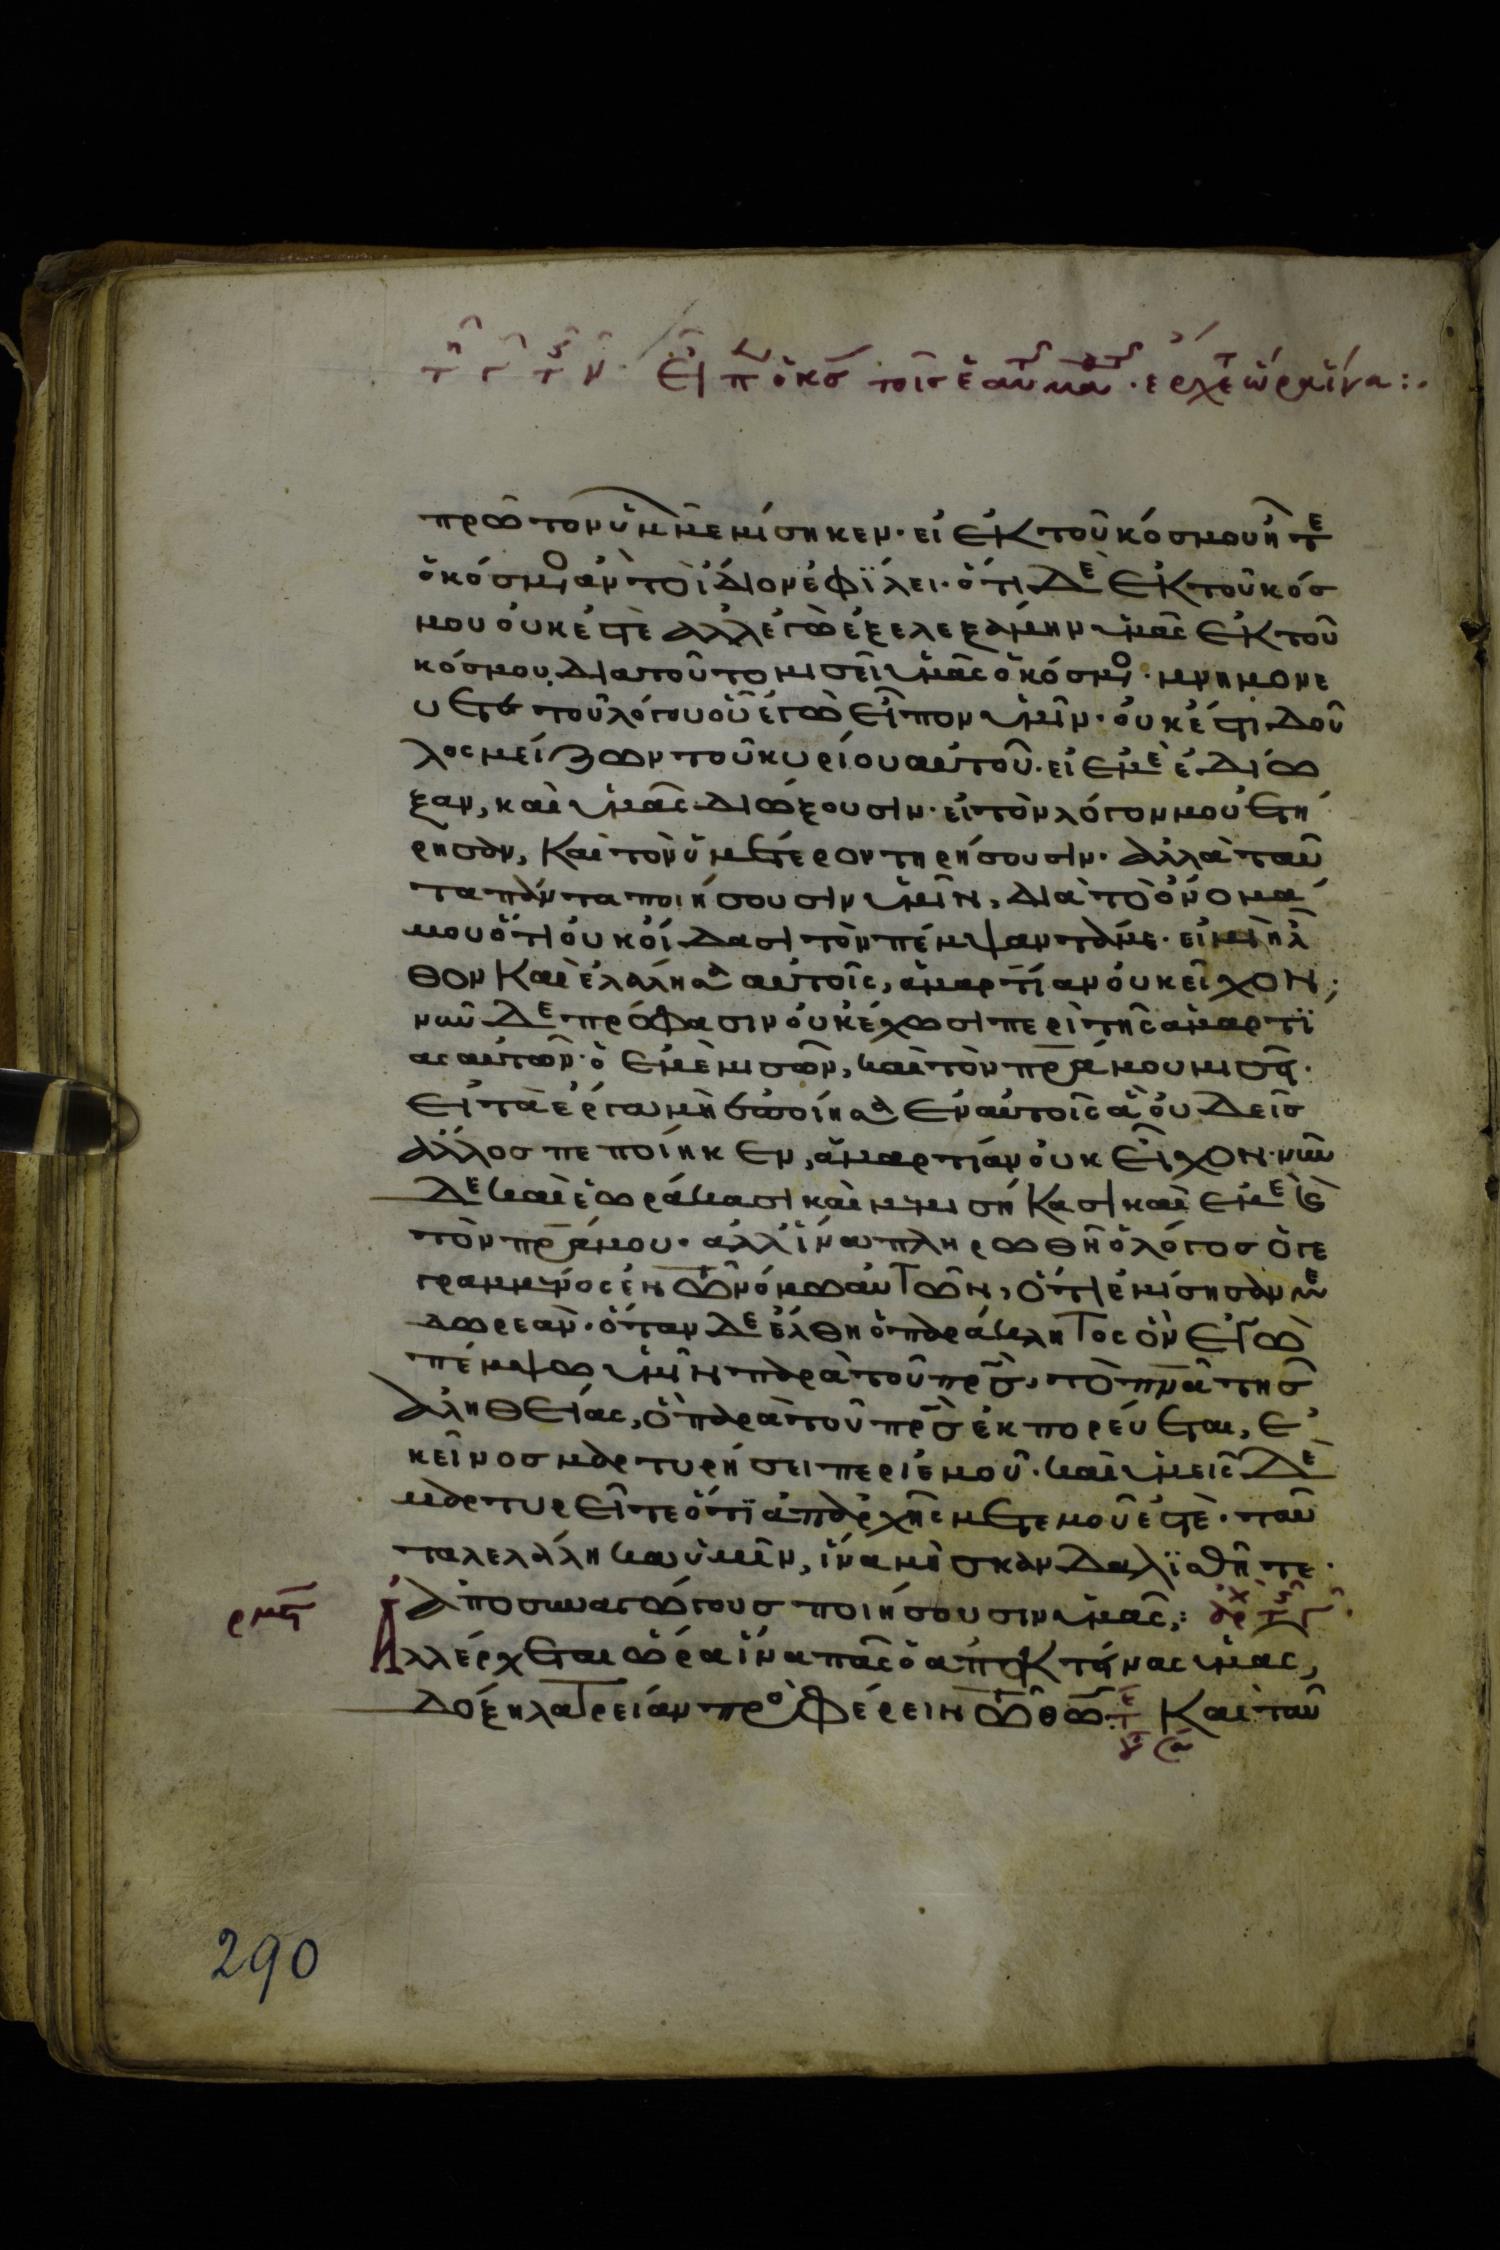 τη γ τη ν. Εἶπ ὁ κσ τοῖσ ἑαυτ μαθτ. ερχετ ὥρα ἵνα:.
πρῶτον ὑμῶν μεμίσηκεν· εἰ ἐκ τοῦ κόσμου ἦτε
ὁ κόσμος ἂν τὸ ἴδιον ἐφΐλει· ὅτι δὲ ἐκ τοῦ κόσ
μου οὐκ ἐστὲ ἀλλ ἐγὼ ἐξελεξάμην ὑμᾶς ἐκ τοῦ
κόσμου, διατοῦτο μισεῖ ὑμᾶς ὁ κόσμος· μνημονε
ύετε τοῦ λόγου οὗ ἐγὼ εἶπον ὑμῖν· οὐκ έστι δοῦ
λος μείζων τοῦ κυρίου αὐτοῦ· εἰ ἐμὲ ἐδίω
ξαν, καὶ ὑμᾶς διώξουσιν· εἰ τὸν λόγον μου ἐτή
ρησαν, καὶ τὸν ὑμέτερον τηρήσουσιν· ἀλλὰ ταῦ
τα πάντα ποιήσουσιν ὑμῖν, διὰ τὸ ὄνομά
μου ὅτι οὐκ οίδασι τὸν πέμψαντά με· εἰ μὴ ἦλ
θον καὶ ἐλάλησα αὐτοῖς, ἁμαρτίαν οὐκ εῖχον;
νῦν δὲ πρόφασιν οὐκ έχωσι περὶ τῆς ἁμαρτΐ
ας αὐτῶν· ὁ ἐμὲ μισῶν, καὶ τὸν πρα μου μισεῖ·
Εἰ τὰ έργα μὴ ἐποίησα ἐν αὐτοῖς ἃ οὐδεὶσ
ἄλλοσ πεποίηκεν, ἁμαρτίαν οὐκ εῖχον· νῦν
δὲ καὶ ἑωράκασι καὶ μεμισήκασι καὶ ἐμὲ καὶ
τὸν πρα μου· ἀλλ ἵνα πληρωθῆ ὁ λόγοσ ὁ γε
γραμμένος ἐν τῶ νόμω αὐτῶν, ὅτι ἐμίσησάν με
δωρεάν· ὅταν δὲ έλθη ὁ παράκλητος ὃν ἐγὼ
πέμψω ὑμῖν παρὰ τοῦ πρσ, τὸ πνα τῆσ
ἀληθείας, ὃ παρὰ τοῦ πρσ ἐκπορεύεται, ἐ
κεῖνοσ μαρτυρήσει περὶ ἐμοῦ· καὶ ὑμεῖς δὲ
μαρτυρεῖτε ὅτι ἀπαρχῆς μετεμοῦ ἐστὲ· ταῦ
τα λελάληκα ὑμῖν, ἵνα μὴ σκανδαλϊσθῆτε·
ρμη ἀποσυναγώγους ποιήσουσιν ὑμᾶς: ἀρχ τη γ
Ἀλλ έρχεται ὥρα ἵνα πᾶς ὁ ἀποκτείνας ὑμᾶς,
δόξη λατρείαν προσφέρειν τῶ θῶ. Καὶ ταῦ
290